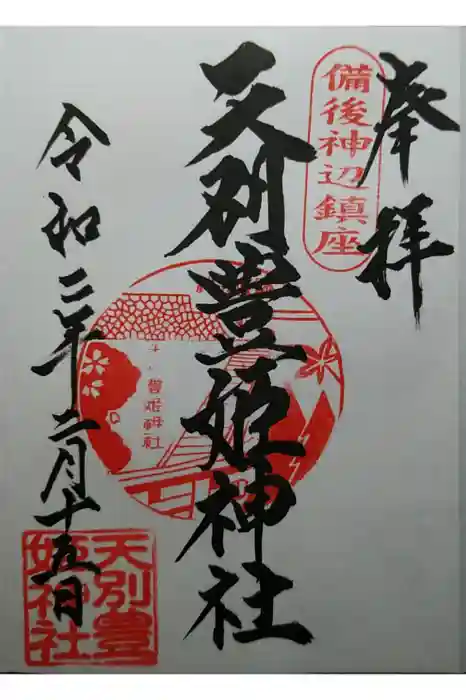 奉拝
備後神辺鎮座
天別豊姫神社
令和二年二月十五日
豊姫神社
天別豊
姫神社